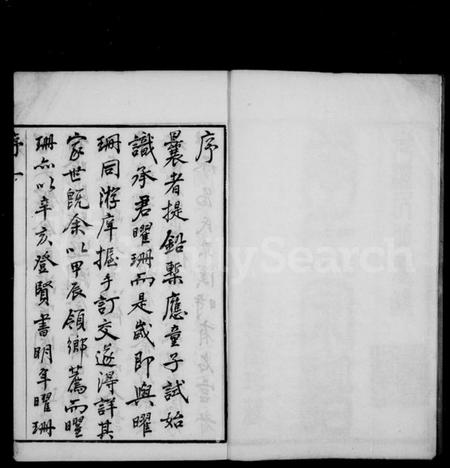 序
曩者提鉛槧應童子試始
識承君曜珊而是歲即與曜
珊同游庠握手訂交遂得詳其
家世既余以甲辰領鄉薦而曜
珊亦以辛亥登賢書明年曜珊
序 一
FamilySearch